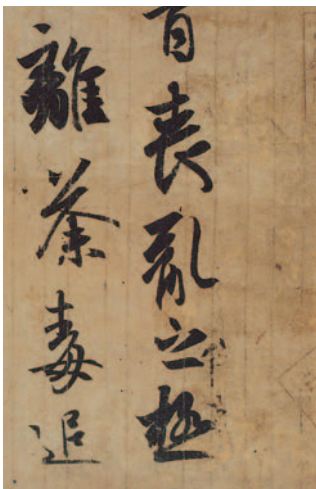 首喪亂之極
離荼毒追